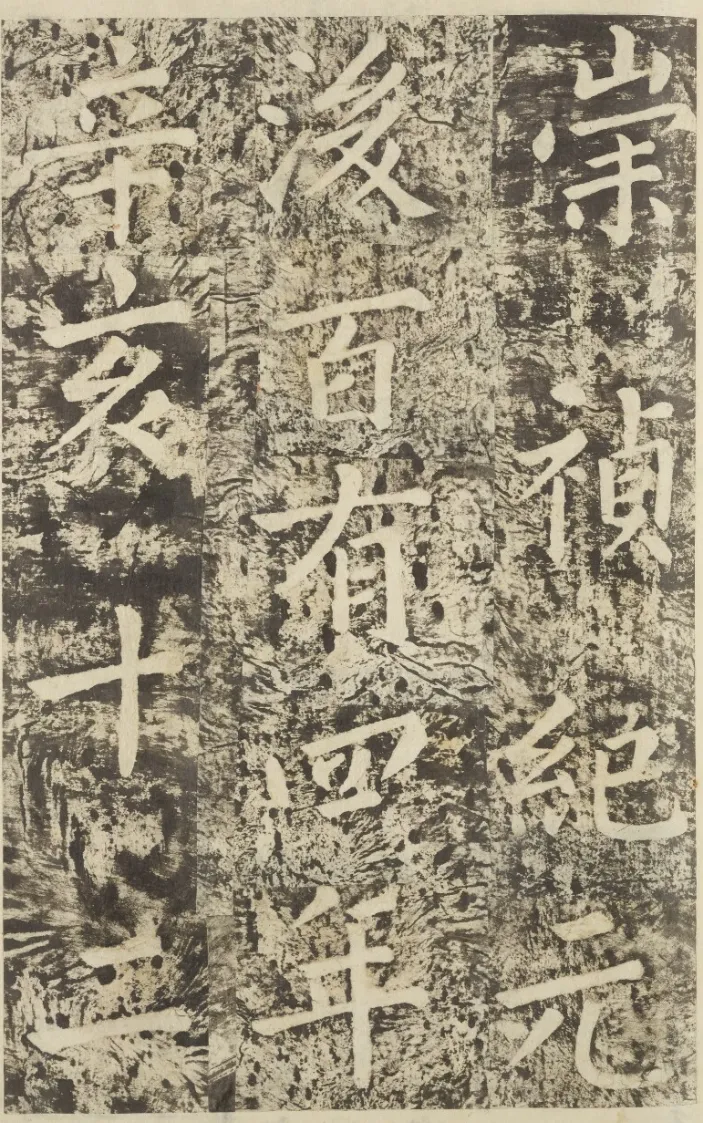 崇禎紀元
後百有四年
辛亥十二